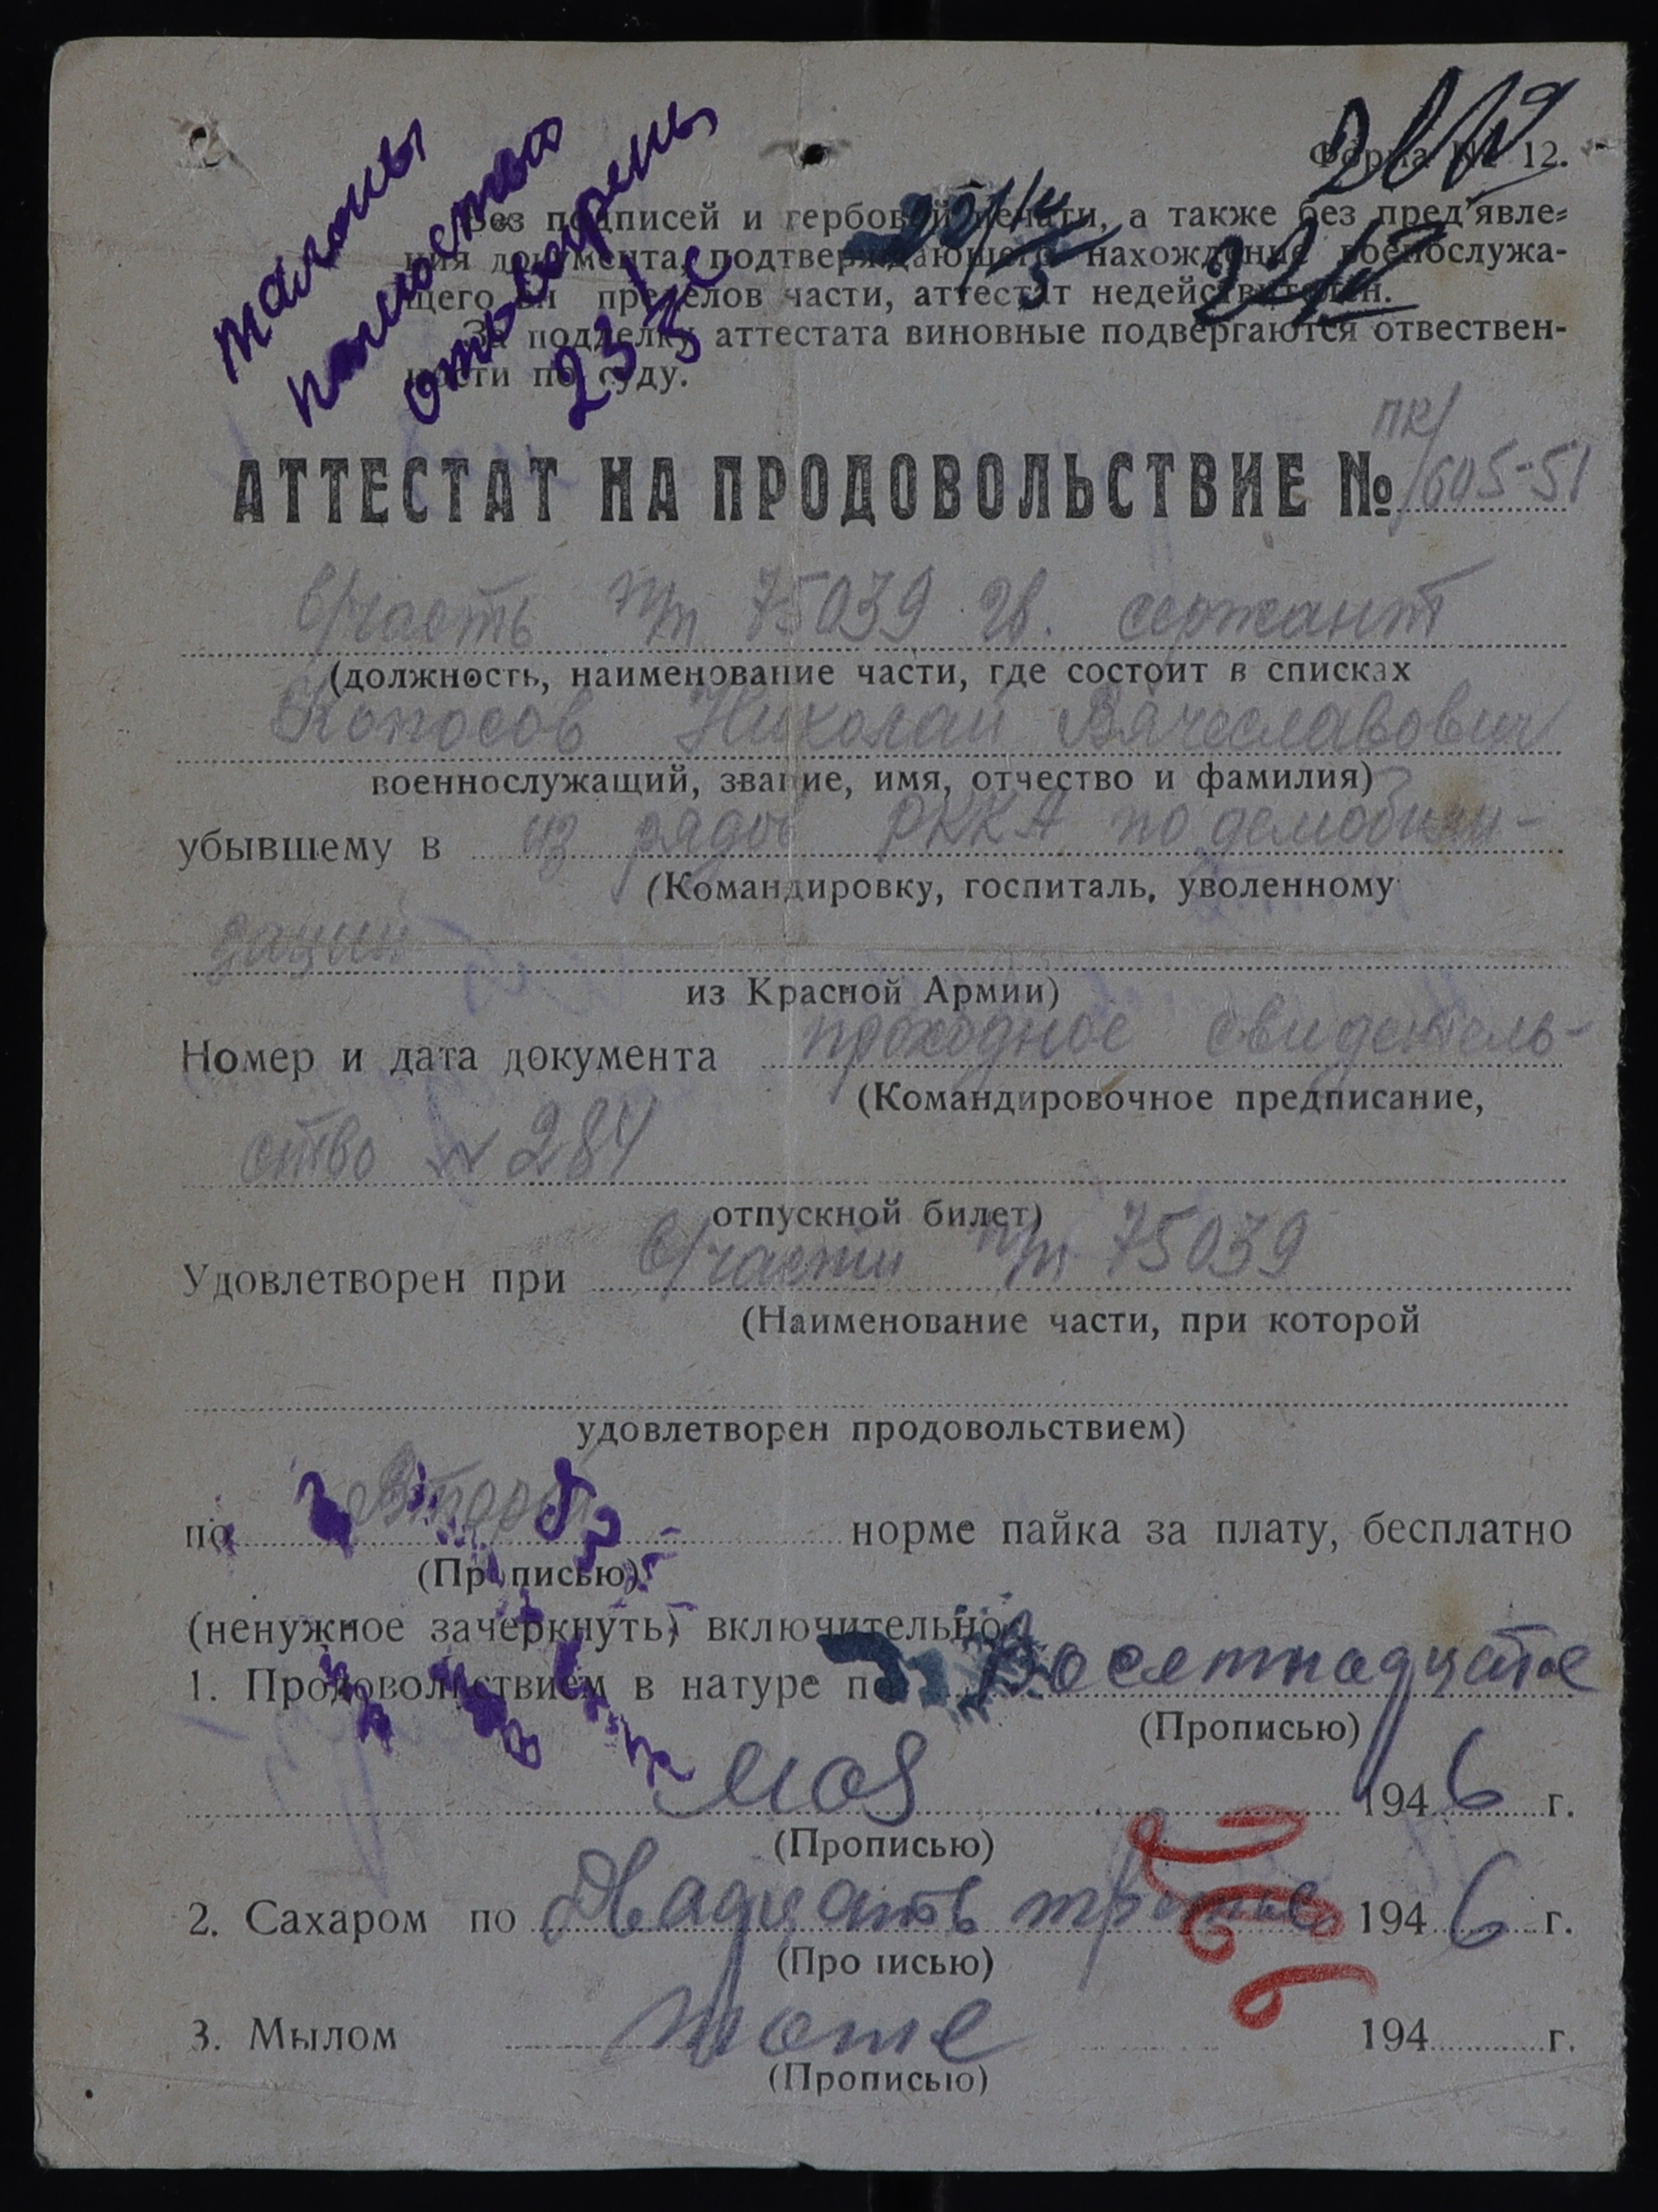 талоны
полностью
23/5
Форма № 12.
22/V
Без подписей и гербовой печати, а также без пред'явле-
ния документа, подтверждающего нахождение военослужа-
щего вн пределов части, аттестат недействителен.
За подделку аттестата виновные подвергаются отвествен-
ности по суду.
АТТЕСТАТ НА ПРОДОВОЛЬСТВИЕ № ПК/605-51
В/часть п/п 75039 гв. сержант
(должность, наименование части, где состоит в списках
Копосов Николай Вячеславович
военнослужащий, звание, имя, отчество и фамилия)
убывшему в из рядов РККА по демобили-
(Командировку, госпиталь, уволенному
зации
из Красной Армии)
Номер и дата документа проходное свидетель-
(Командировочное предписание,
ство № 284
отпускной билет)
Удовлетворен при В/части п/п 75039
(Наименование части, при которой
удовлетворен продовольствием)
по Второй норме пайка за плату, бесплатно
(Прописью)
(ненужное зачеркнуть) включительно
1. Продовольствием в натуре по Восемнадцатое
(Прописью)
мая 1946 г.
(Прописью)
2. Сахаром по Двадцать третье 1946 г.
(Прописью)
3. Мылом тоже 194 г.
(Прописью)